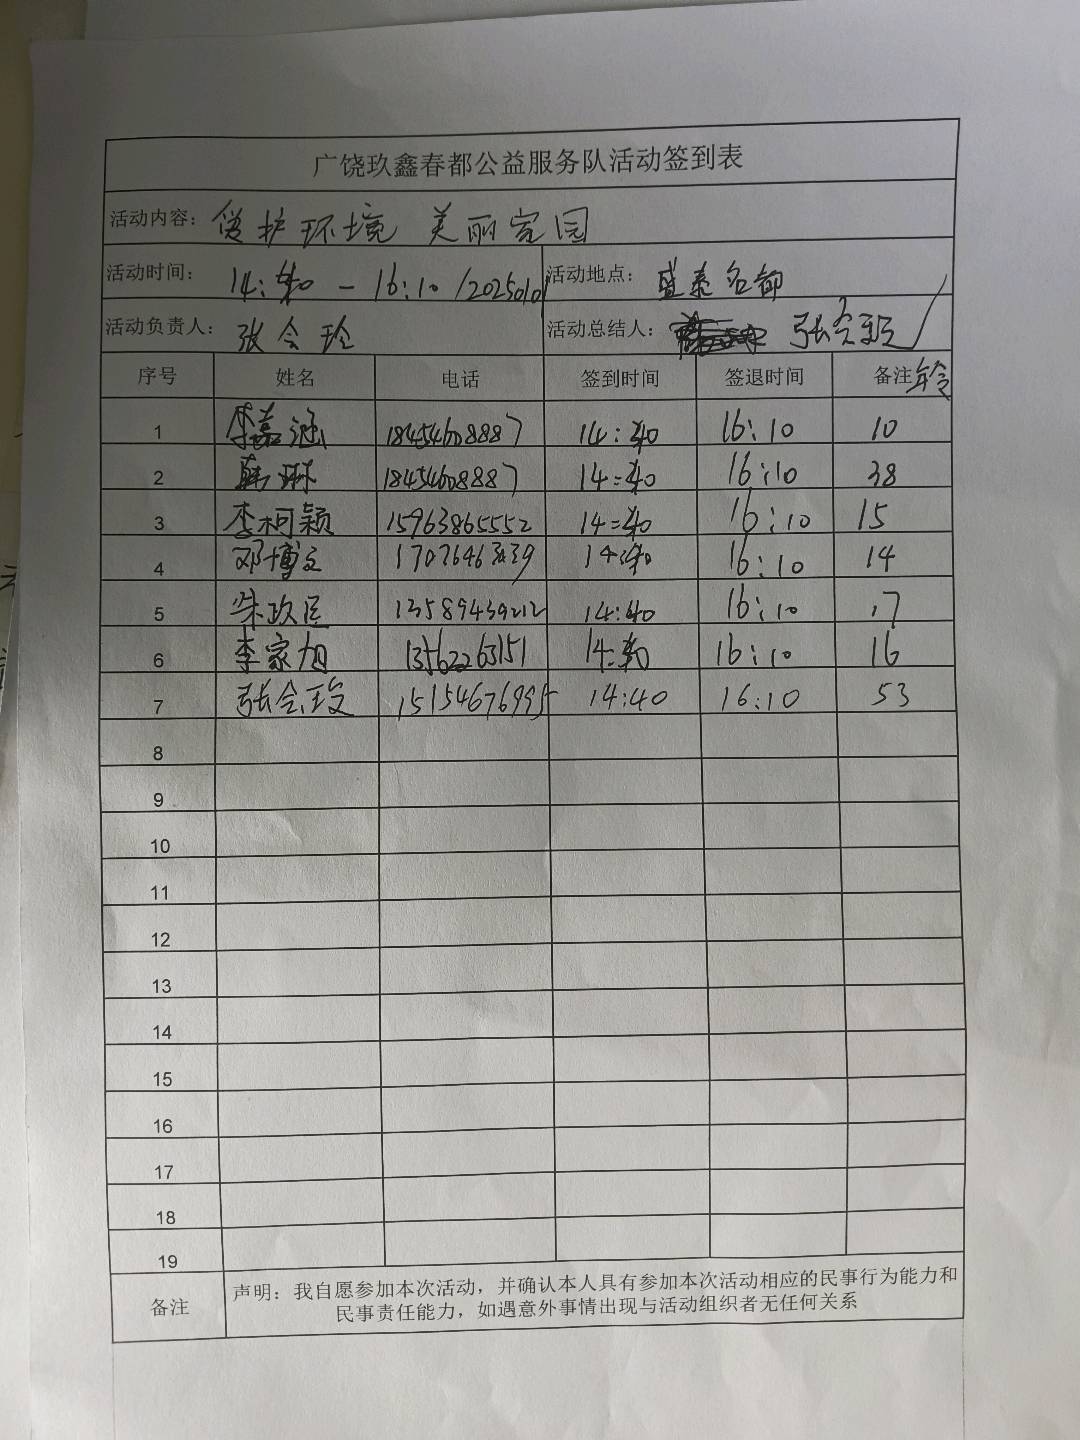 广饶玖鑫春都公益服务队活动签到表
活动内容： 爱护环境 美丽家园
活动时间： 14:40 — 16:10 /20250101 活动地点： 盛泰名都
活动负责人： 张会玲 活动总结人： 张会颖
序号 姓名 电话 签到时间 签退时间 备注 年令
1 李嘉涵 18454608887 14:40 16:10 10
2 韩琳 18454608887 14:40 16:10 38
3 李柯颖 15963865552 14:40 16:10 15
4 邓博文 14:40 16:10 14
5 朱政 13589439212 14:40 16:10 17
6 李家旭 13562263151 14:40 16:10 16
7 张会玲 15154676995 14:40 16:10 53
8
9
10
11
12
13
14
15
16
17
18
19
备注 声明：我自愿参加本次活动，并确认本人具有参加本次活动相应的民事行为能力和
民事责任能力，如遇意外事情出现与活动组织者无任何关系